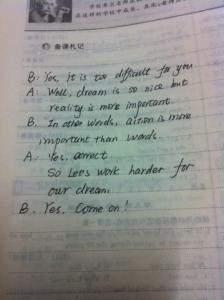 备课札记
B: Yes, it is too difficult for you
A: Well, dream is so nice but
reality is more important.
B. In other words, action is more
important than words.
A: Yes, correct.
So Let's work harder for
our dream.
B. Yes. Come on!